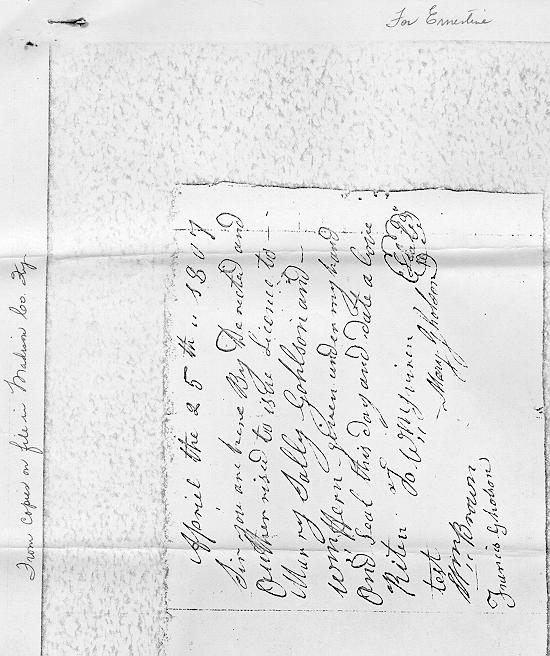 For Ernestine
From Copied on file in Madison Co. Ky
April the 25th .. 1807
Sir you are here By Derected and
Outher rised to isue Licence to
Marry Sally Gohlson and
given under my hand
And Seal this day and date a bove
Riten
To
Mary Gholson Seal
test
Wm Brown
Francis Gholson